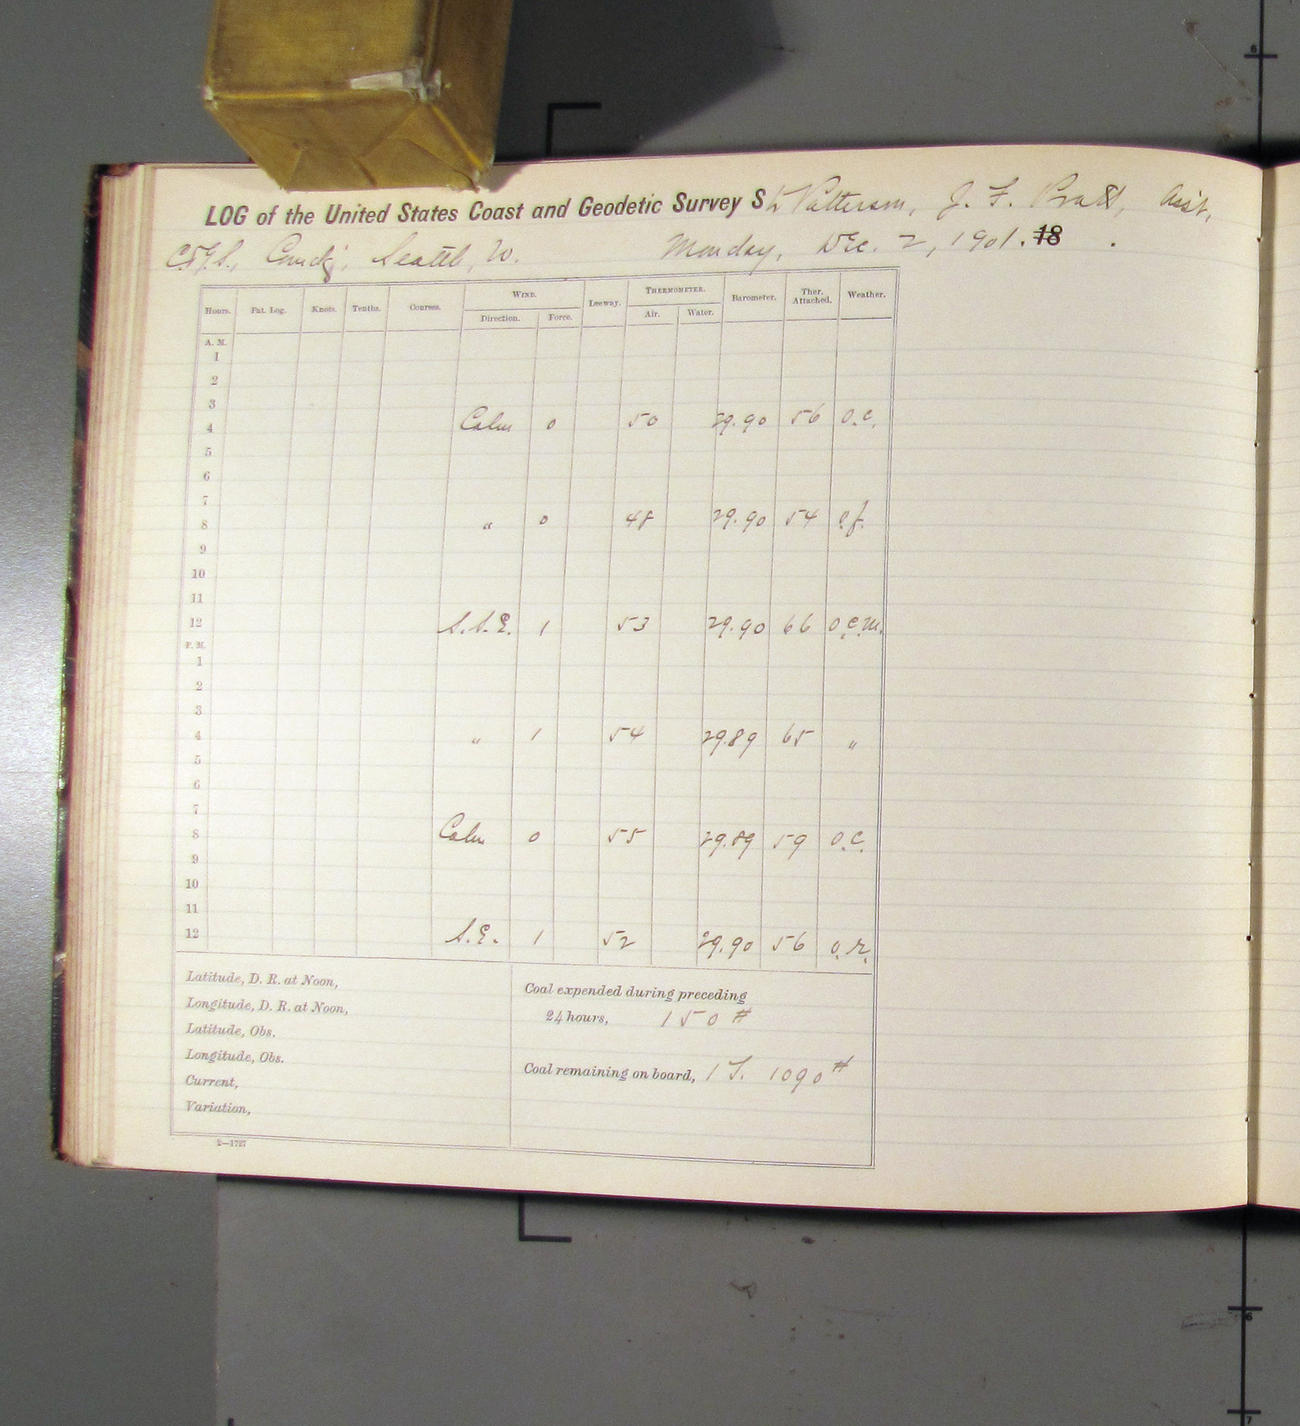 LOG of the United States Coast and Geodetic Survey Str Patterson, J. F. Pratt, Asst,
C&G.S., Comd'g, Seattle, W. Monday, Dec. 2, 1901. 18 .
Hours. Pat. Log. Knots. Tenths. Courses. WIND. Direction. Force. Leeway. THERMOMETER. Air. Water. Barometer. Ther. Attached. Weather.
A. M.
1
2
3
4 Calm 0 50 29.90 56 o.c.
5
6
7
8 " 0 48 29.90 54 c.f.
9
10
11
12 S.S.E. 1 53 29.90 66 o.c.m.
P. M.
1
2
3
4 " 1 54 29.89 65 "
5
6
7
8 Calm 0 55 29.89 59 o.c.
9
10
11
12 S.E. 1 52 29.90 56 o.r.
Latitude, D. R. at Noon,
Longitude, D. R. at Noon,
Latitude, Obs.
Longitude, Obs.
Current,
Variation,
Coal expended during preceding
24 hours, 150 #
Coal remaining on board, 1 T. 1090 #
2—1727
6
6
7